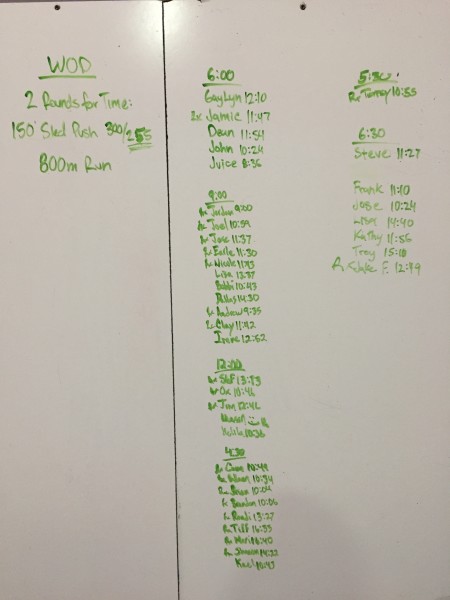 WOD
2 Rounds for Time:
150' Sled Push 300/255
800m Run
6:00
Gaylyn 12:10
Rx Jamie 11:47
Dean 11:54
John 10:24
Juice 8:36
9:00
Rx Jordan 9:00
Rx Joel 10:59
Rx Jose 11:37
Rx Earle 11:30
Rx Nicole 11:43
Lisa 13:37
Bobbi 10:43
Dallas 14:30
Rx Andrew 9:35
Rx Clay 11:42
Irene 12:52
12:00
Rx Stef 13:13
Rx Ox 10:41
Rx Jim 12:41
10:36
4:30
Rx Conn 10:49
Rx 10:34
Rx Brian 10:04
Rx Brandon 10:06
Rx Randi 13:27
Rx Tiff 16:33
Rx Mari 16:40
Rx Shannon 14:22
Kael 10:43
5:30
Rx Tammy 10:55
6:30
Steve 11:27
Frank 11:10
Jobe 10:24
Lisa 14:40
Kathy 11:56
Troy 15:10
Jake F. 12:49